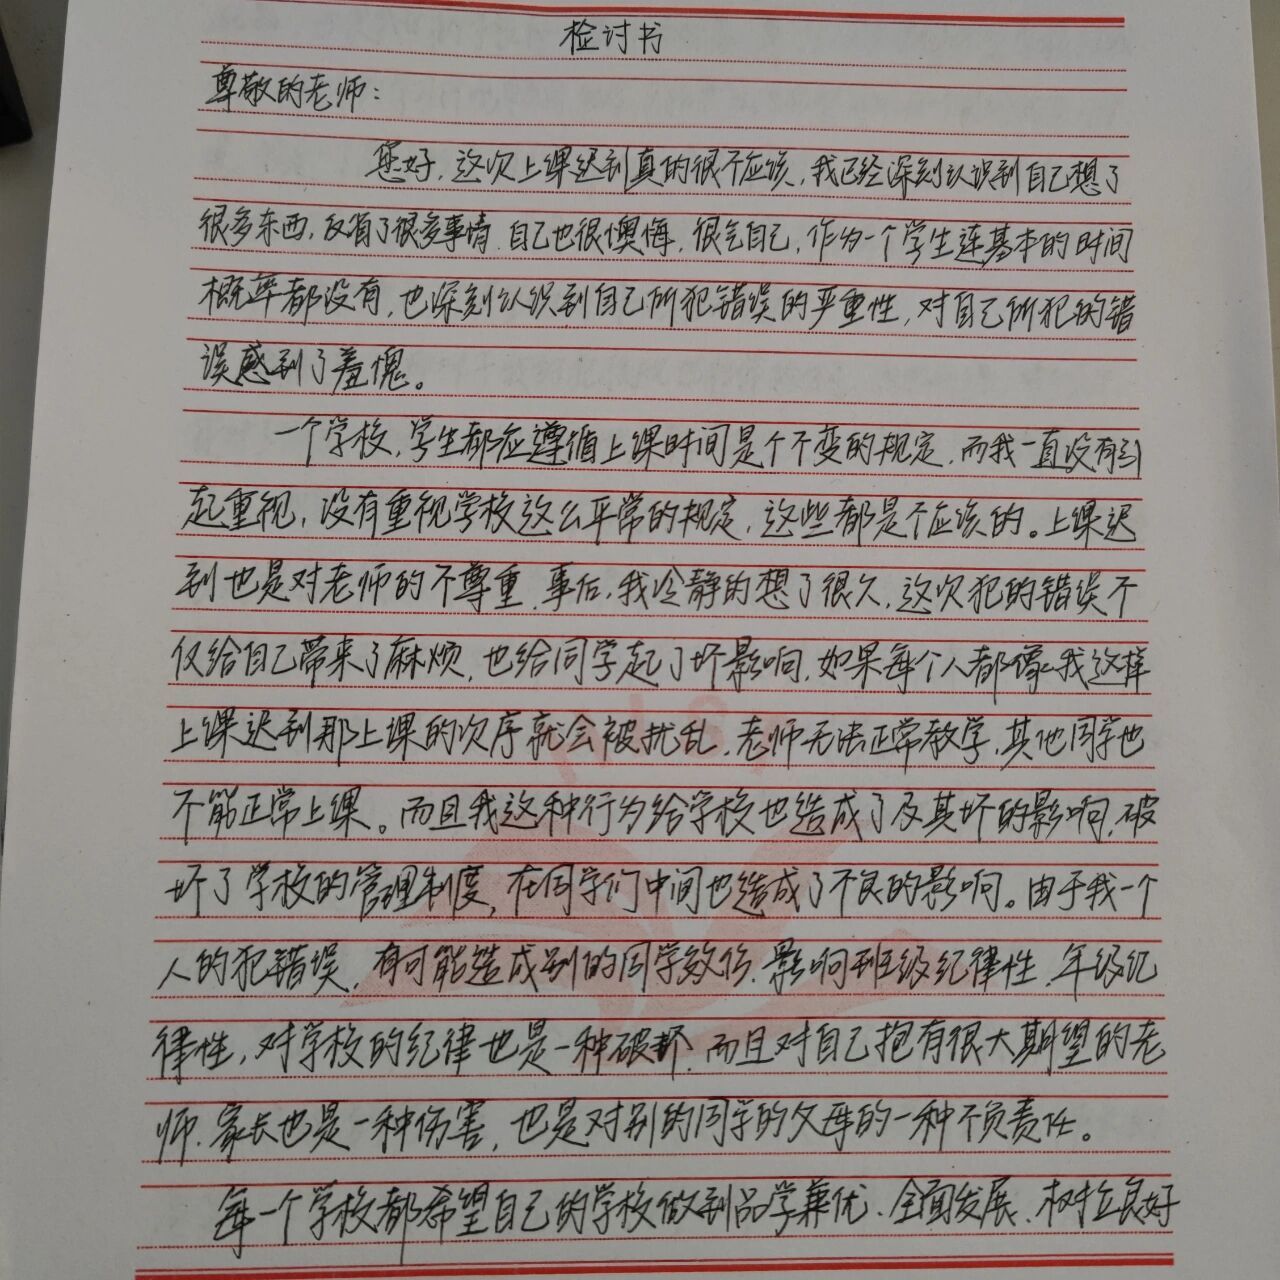 检讨书
尊敬的老师:
您好,这次上课迟到真的很不应该,我已经深刻认识到自己想了
很多东西,反省了很多事情,自己也很懊悔,很气自己,作为一个学生连基本的时间
概率都没有,也深刻认识到自己所犯错误的严重性,对自己所犯的错
误感到了羞愧。
一个学校,学生都应遵循上课时间是个不变的规定,而我一直没有引
起重视,没有重视学校这么平常的规定,这些都是不应该的。上课迟
到也是对老师的不尊重,事后,我冷静的想了很久,这次犯的错误不
仅给自己带来了麻烦,也给同学起了坏影响,如果每个人都像我这样
上课迟到那上课的次序就会被扰乱,老师无法正常教学,其他同学也
不能正常上课。而且我这种行为给学校也造成了及其坏的影响,破
坏了学校的管理制度,在同学们中间也造成了不良的影响。由于我一个
人的犯错误,有可能造成别的同学效仿,影响班级纪律性,年级纪
律性,对学校的纪律也是一种破坏,而且对自己抱有很大期望的老
师、家长也是一种伤害,也是对别的同学的父母的一种不负责任。
每一个学校都希望自己的学校做到品学兼优、全面发展、树立良好